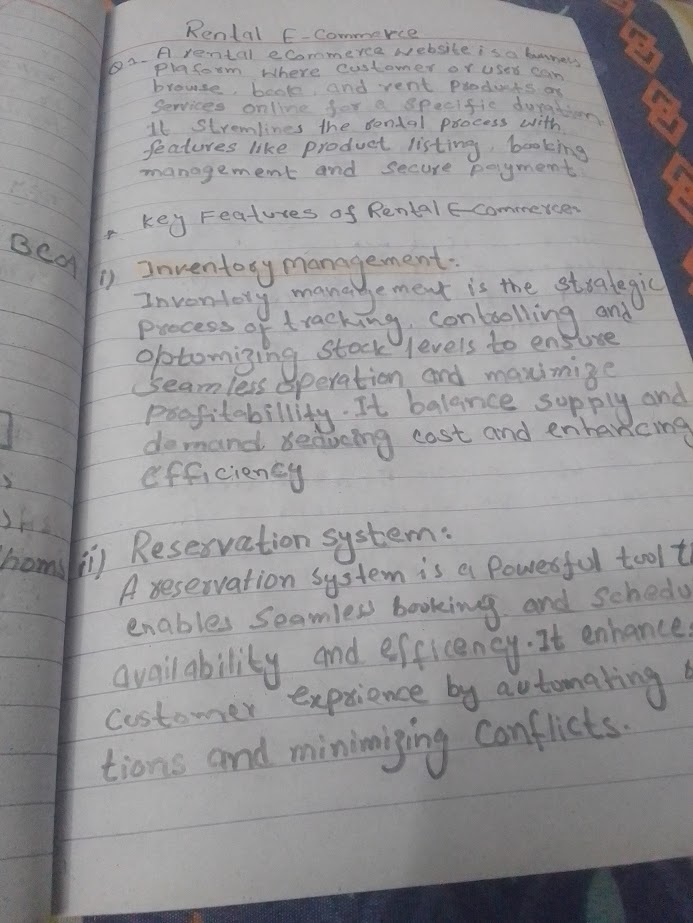 Rental E-Commerce
Q 2. A rental eCommerce website is a business
Plaform where customer or user can
browse, book, and rent products or
Services online for a specific duration.
It stremlines the rental process with
features like product listing, booking
management and secure payment.
* Key Features of Rental E-commerce
i) Inventory management:
Inventory management is the strategic
process of tracking, controlling and
optomizing stock levels to ensure
seamless operation and maximize
profitabillity. It balance supply and
demand reducing cost and enhancing
efficiency
ii) Reservation system:
A reservation system is a powerful tool t
enables seamless booking and schedu
availability and efficency. It enhance
customer exprience by automating
tions and minimizing conflicts.